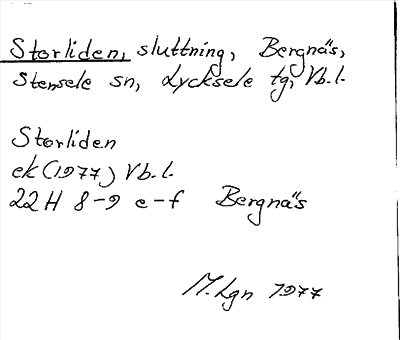 Storliden, sluttning, Bergnäs,
Stensele sn, Lycksele tg, Vb.l.
Storliden
ek (1977) Vb.l.
22H 8-9 e-f Bergnäs
M.Lgn 1977